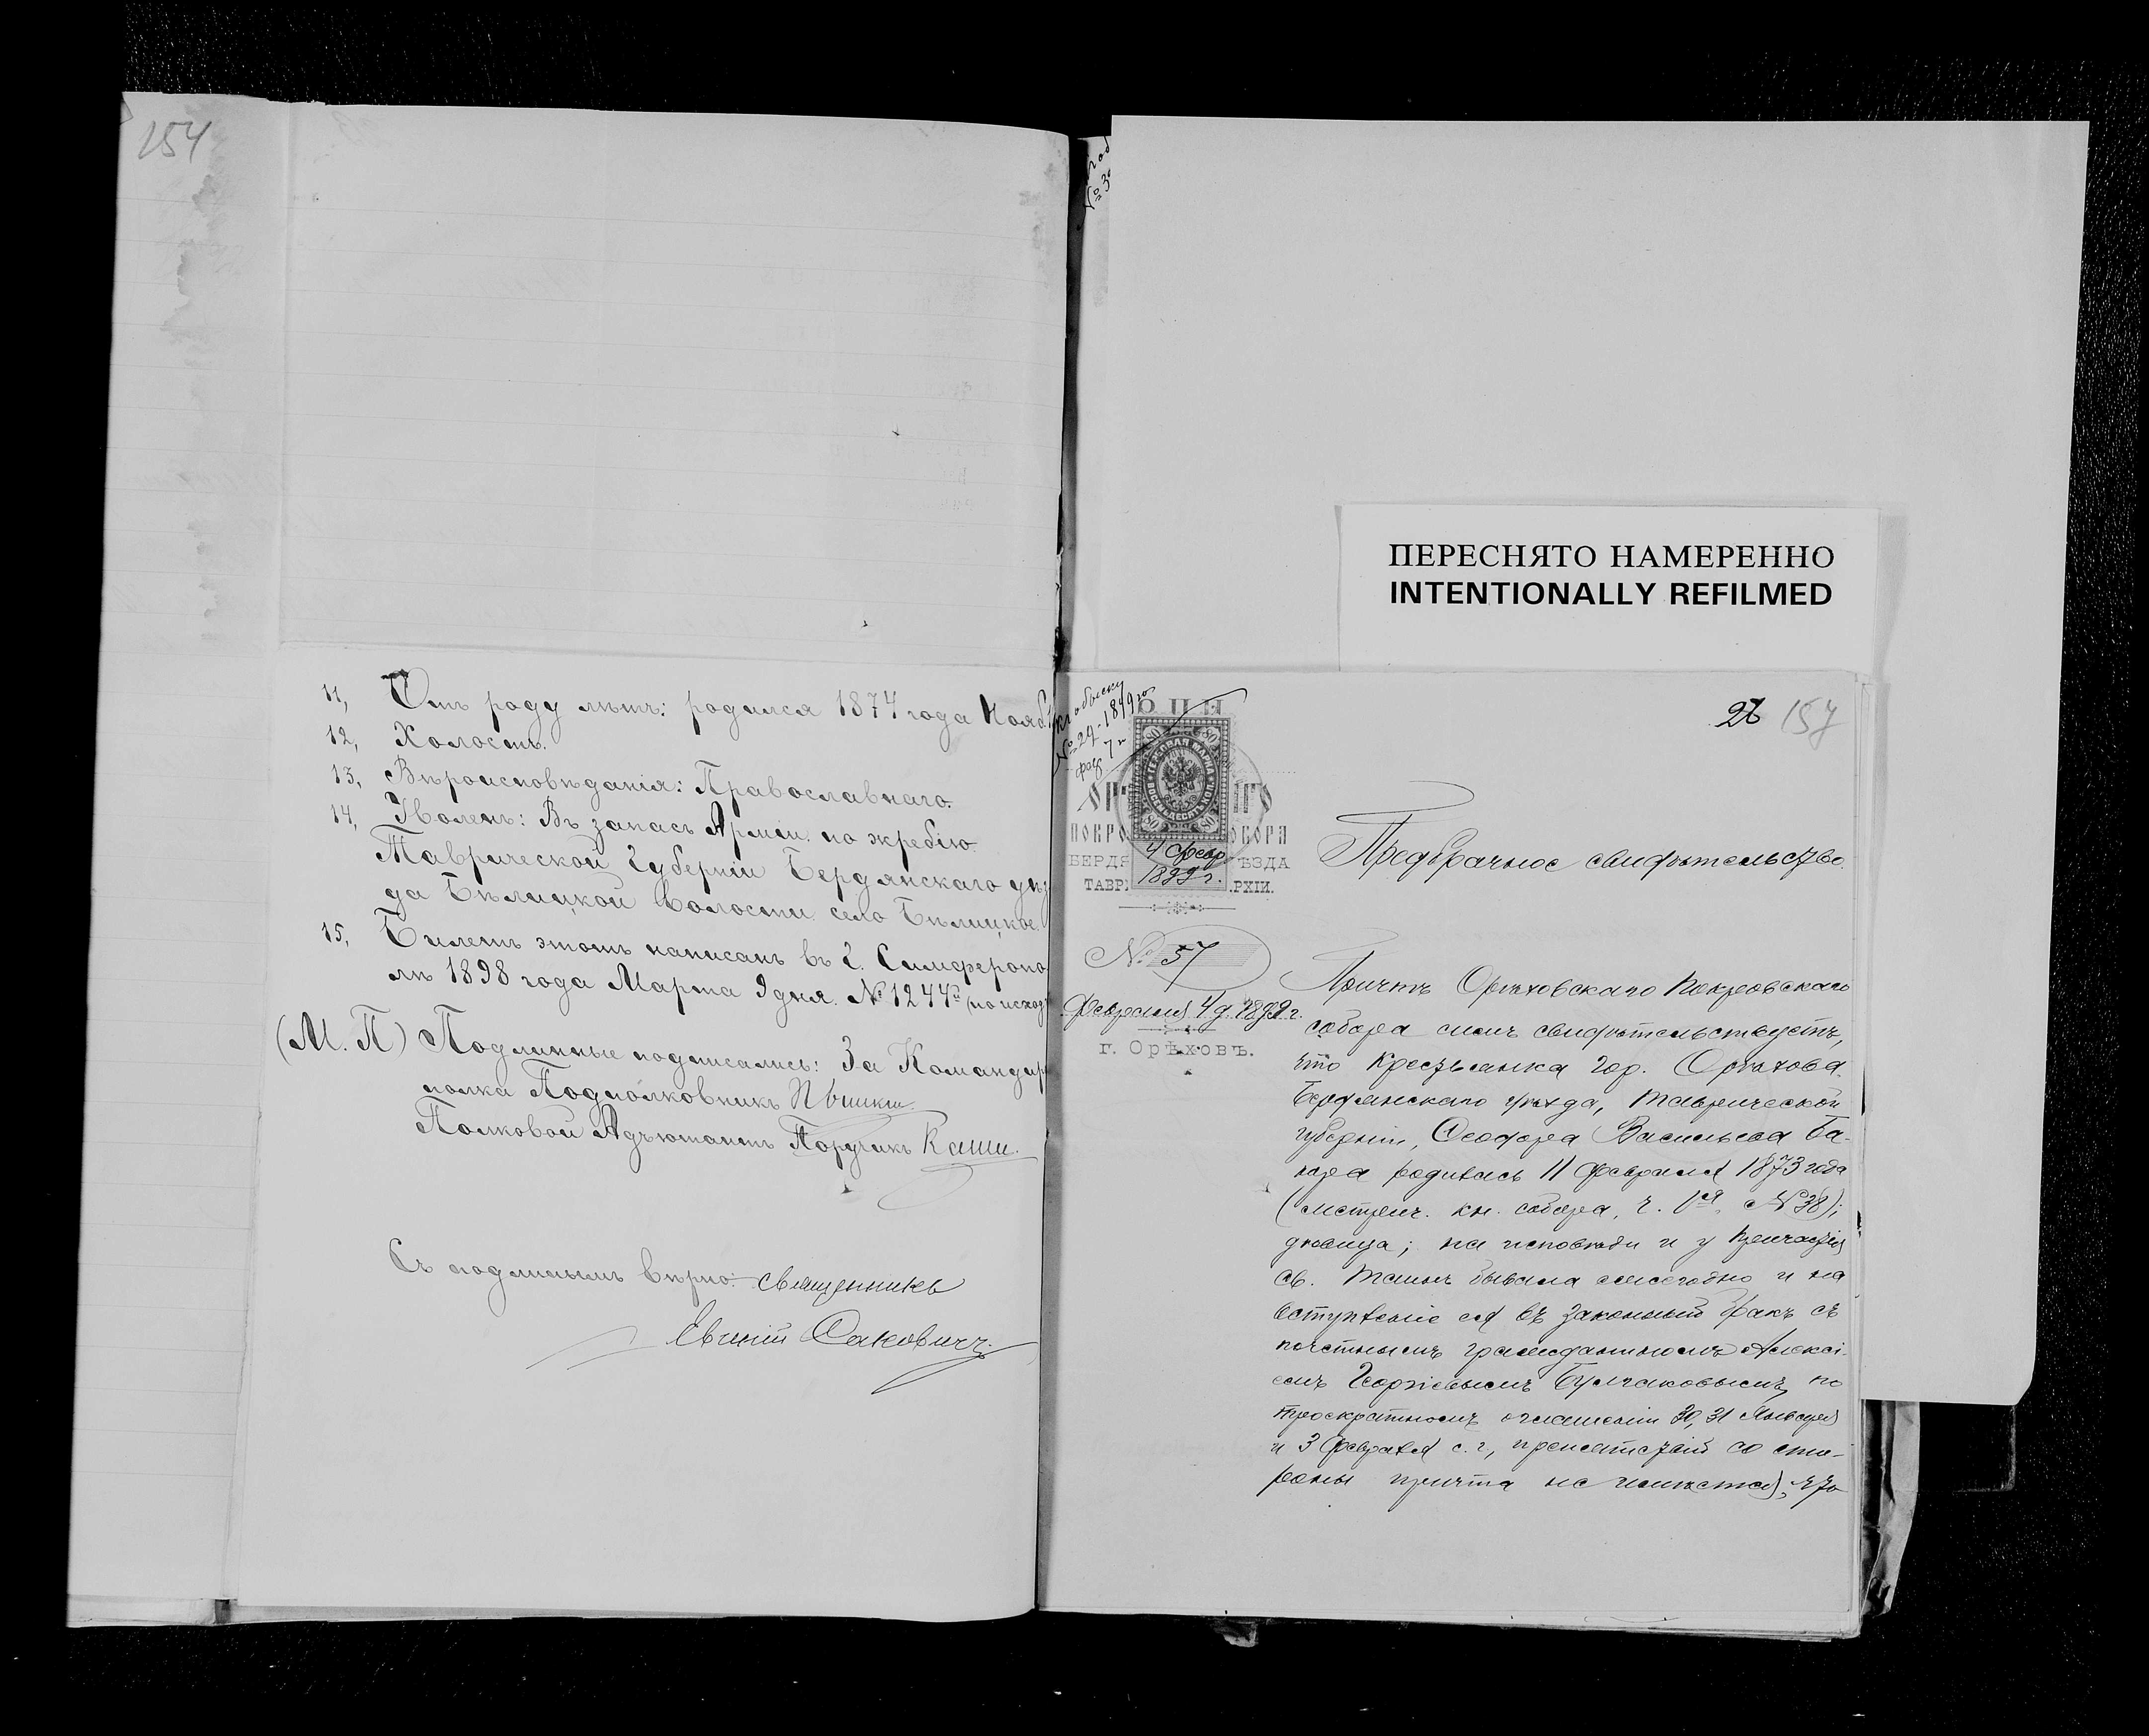 154
11, Отъ роду лѣтъ: родился 1874 года Нояб
12, Холостъ.
13, Вѣроисповѣданія: Православнаго.
14, Уволенъ: Въ запасъ Арміи по жребію
Таврической Губерніи Бердянскаго уѣз
да Бѣлицкой Волости село Бѣлицкое.
15, Билетъ этотъ написанъ въ г. Симферопо
лѣ 1898 года Марта 9 дня. № 1244й (по исход
(М. П) Подлинные подписались: За Командир
полка Подполковникъ
Полковой Адъютантъ Поручикъ
Съ подлинымъ вѣрно: священникъ
Евгеній Саковичъ.
ПЕРЕСНЯТО НАМЕРЕННО
INTENTIONALLY REFILMED
157
Къ обыску
№ 29-1899 го
80 80
ГЕРБОВАЯ МАРКА
80 80
ПОКРО ОБОРА
БЕРДЯ ѢЗДА
ТАВР РХІИ.
4 Февр
1899 г.
№ 57
Февраля 4 д. 1899 г.
г. Орѣховъ.
Предбрачное свидѣтельство.
Причтъ Орѣховскаго Покровскаго
собора симъ свидѣтельствуетъ,
что крестьянка гор. Орѣхова
Бердянскаго уѣзда, Таврической
губерніи, Ѳеодора Васильева Ба-
кора родилась 11 февраля 1873 года
(метрич. кн. собора, ч. Iая, № 38);
дѣвица; на исповѣди и у причастія
св. Таинъ бывала ежегодно и на
вступленіе ея въ законный бракъ съ
почетнымъ гражданиномъ Алексі-
емъ Георгіевымъ Булгаковымъ, по
троекратномъ оглашеніи 30, 31 Января
и 3 февраля с. г., препятствій со сто-
роны причта не имѣется, что